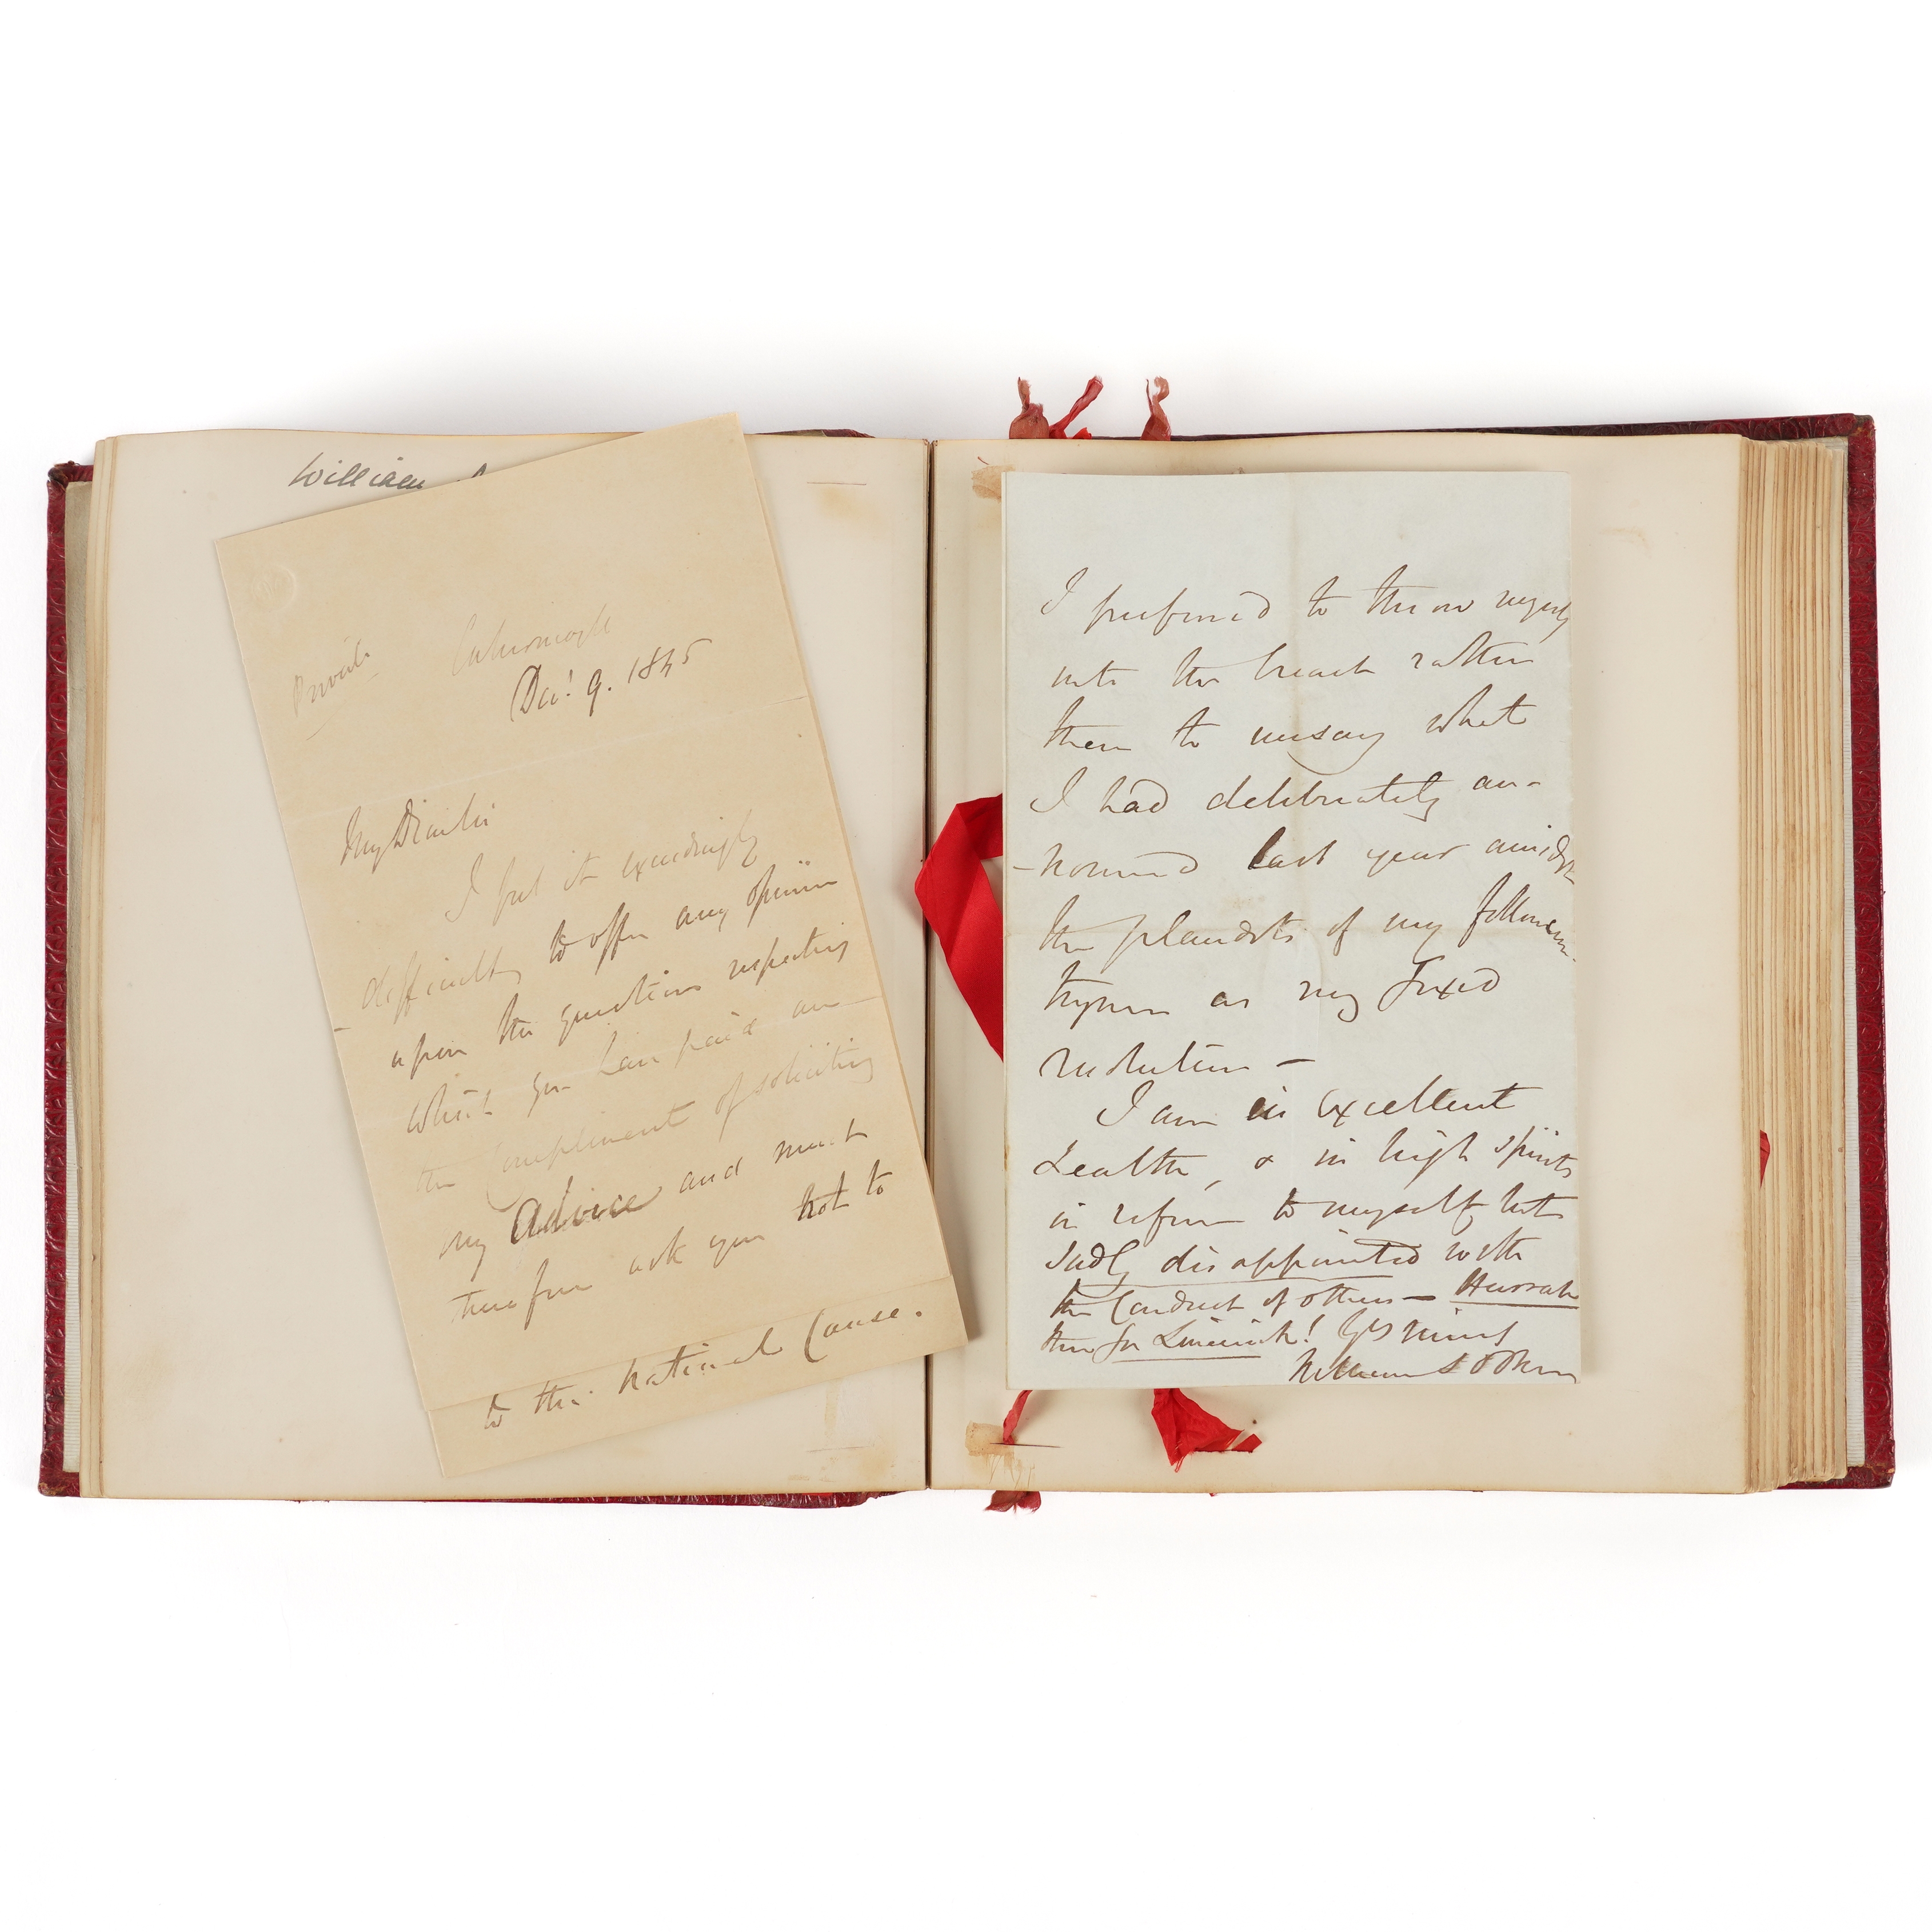 William
Private Cahermoyle
Dec! 9. 1845
My Dear Sir
I feel it exceedingly
difficult to offer any opinion
upon the questions respecting
which you have paid me
the Compliment of soliciting
my Advice and must
therefore ask you not to
to the National Cause.
I preferred to throw myself
into the breach rather
than to unsay what
I had deliberately an-
-nounced last year amidst
the plaudits of my fellow coun-
trymen as my fixed
resolution —
I am in excellent
health, & in high spirits
in reference to myself but
sadly disappointed with
the Conduct of others — Hurrah
then for Limerick! Yrs sincy
William S O'Brien